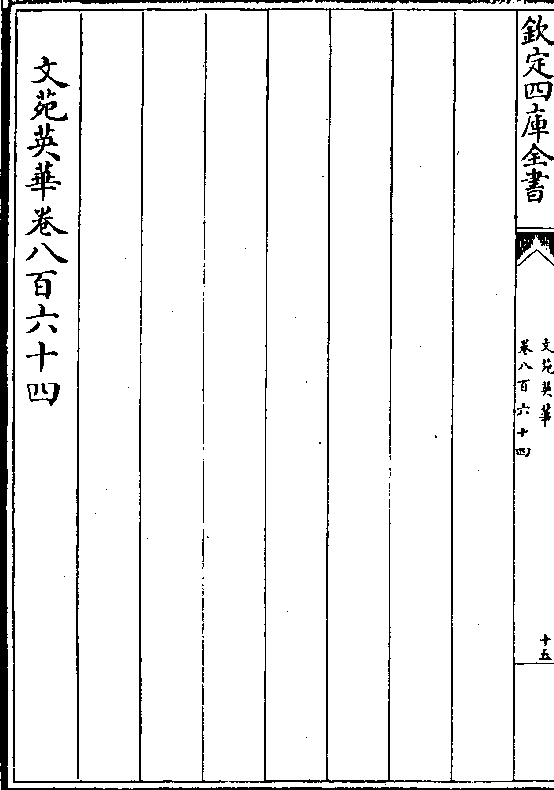 欽定四庫全書
文苑英華
卷八百六十四
十五
文苑英華卷八百六十四